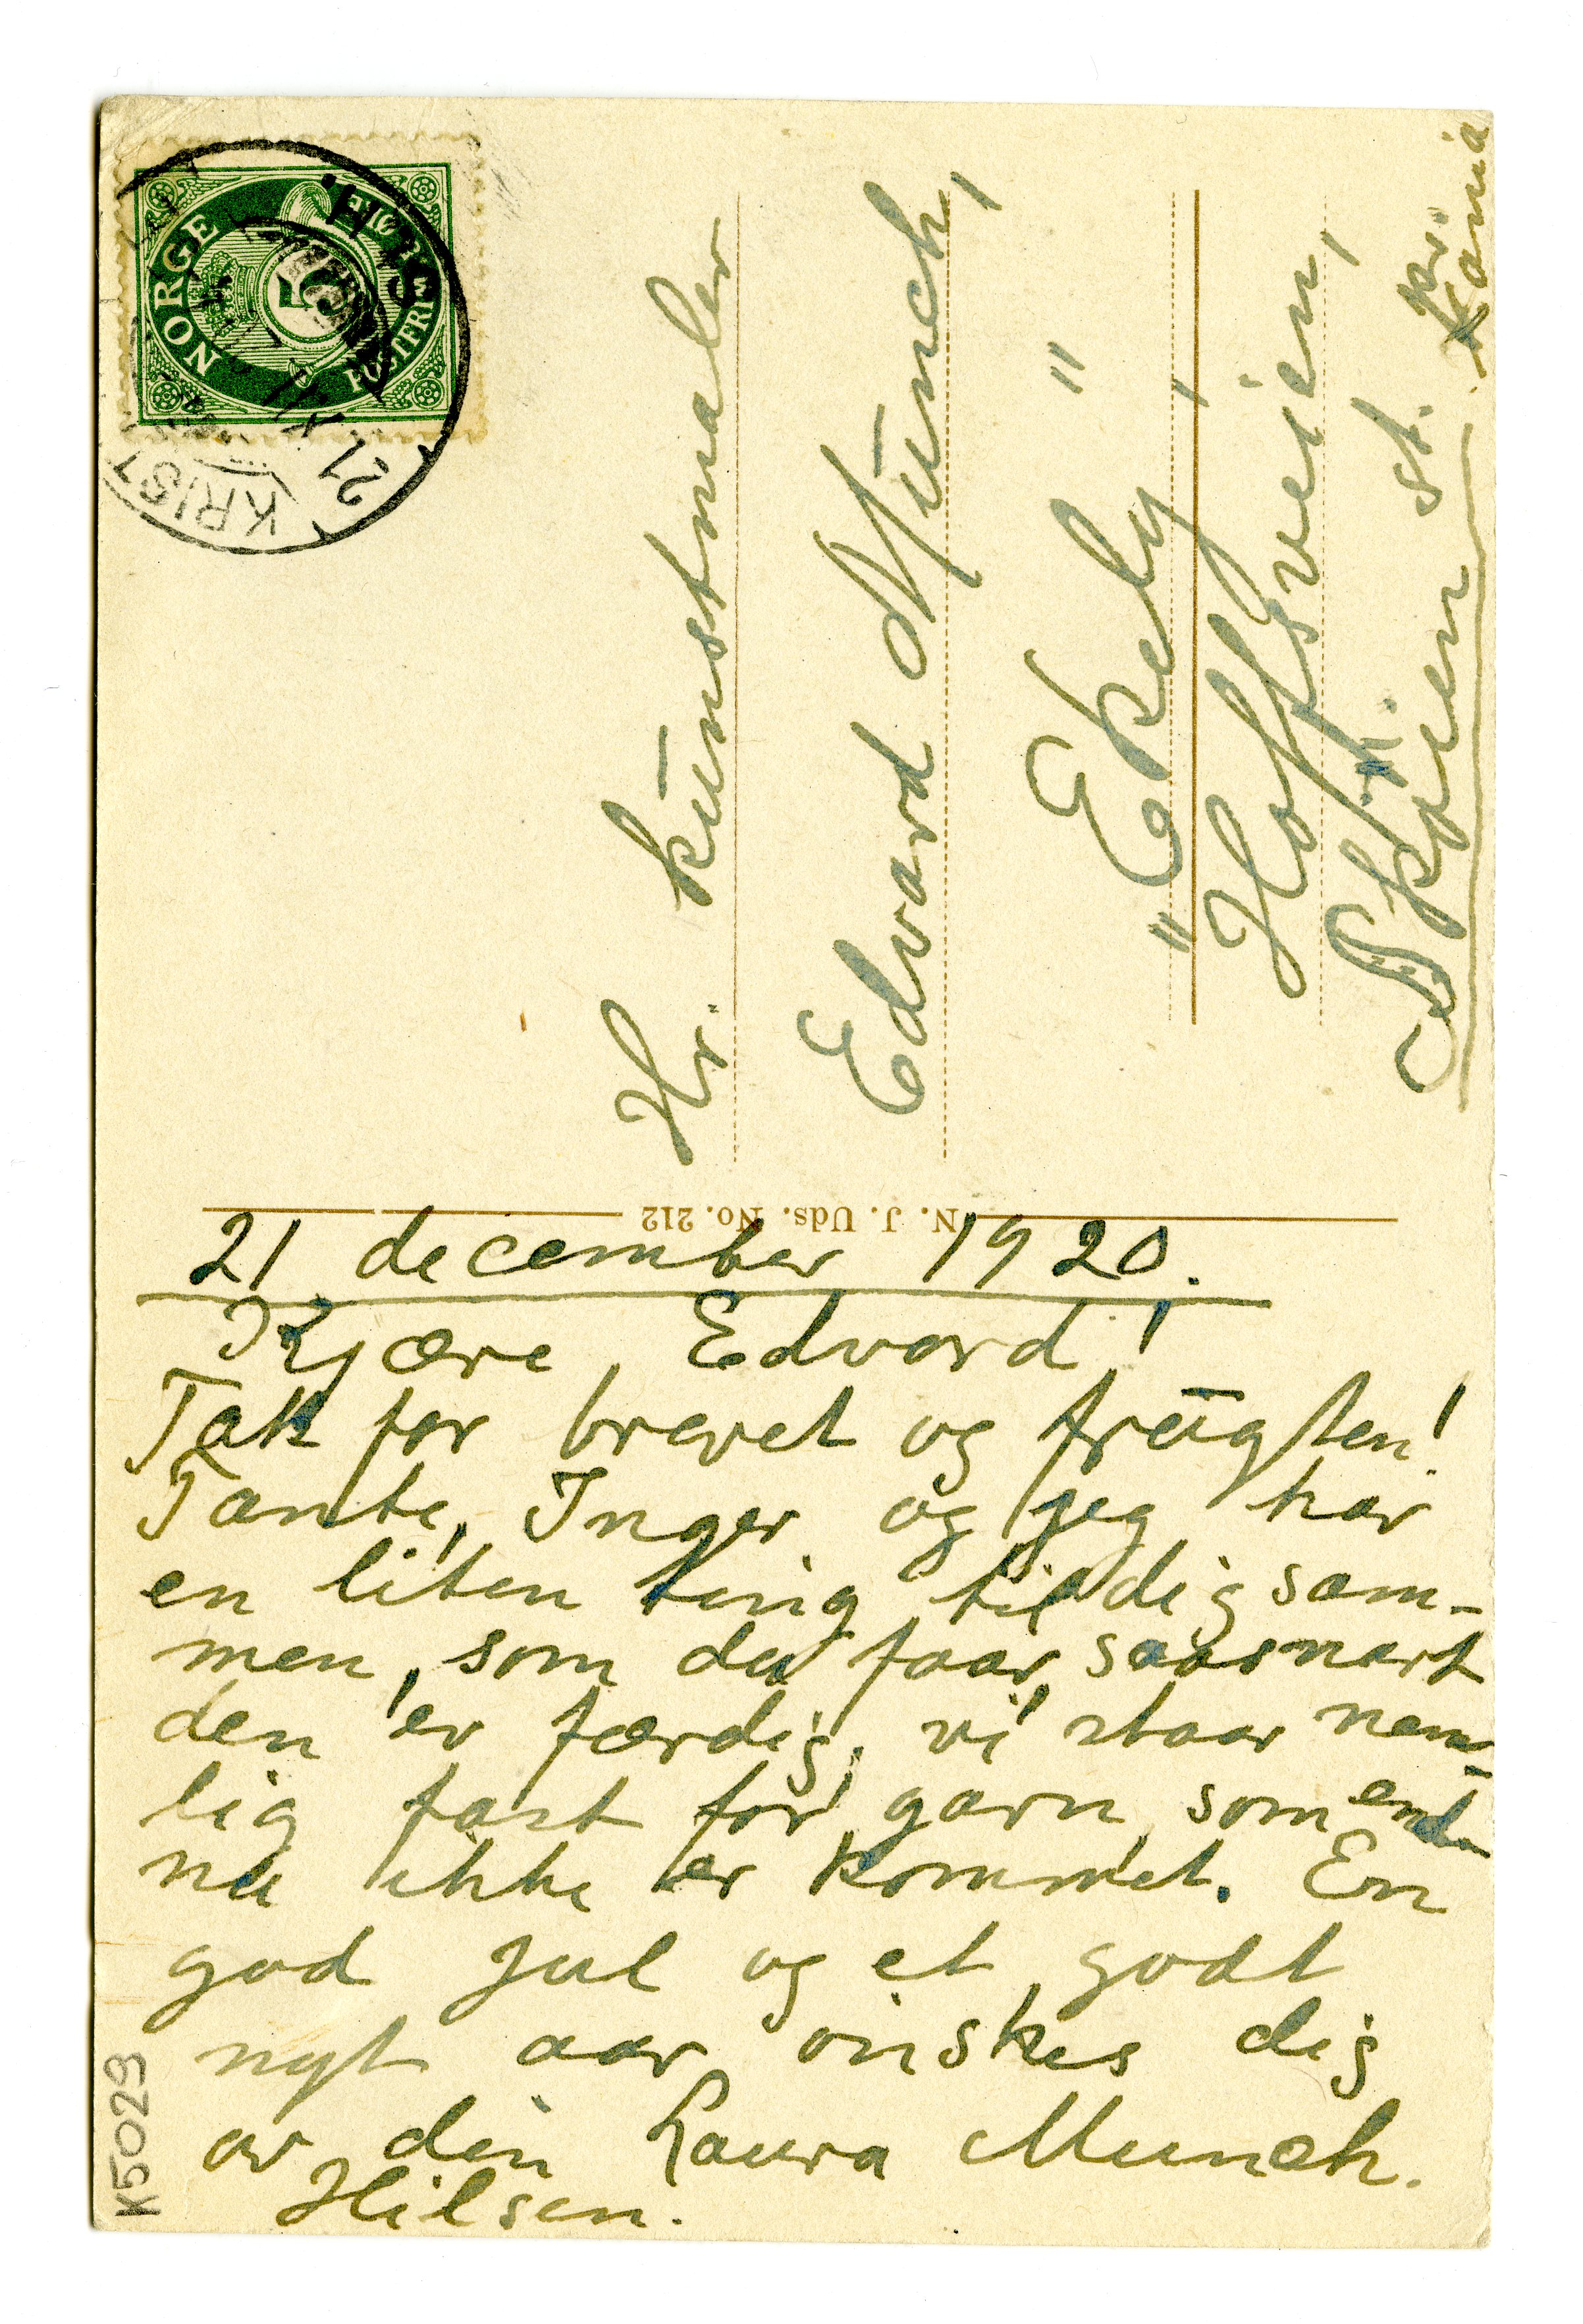 NORGE
5
POSTFRIM
KRIST
21 XII
Hr. kunstmaler
Edvard Munch,
" Ekely, "
Hoffsveien,
Skøien st. pr.
Kr.ania
N. J. Uds. No. 212
21 december 1920.
Kjære Edvard!
Tak for brevet og frugten!
Tante, Inger og jeg har
en liten ting til dig sam-
men, som du faar, saasnart
den er færdig, vi staar nem-
lig fast for garn, som end-
nu ikke er kommet. En
god jul og et godt
nyt aar ønskes dig
av din Laura Munch.
Hilsen.
K5029